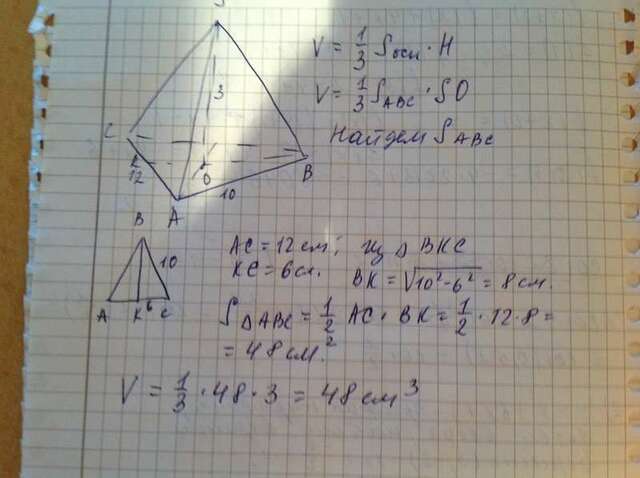 S
V = 1/3 Sосн · H
3
V = 1/3 S ABC · SO
Найдем S ABC
C
K
12
O
B
10
A
B
10
A K 6 C
AC = 12 см; из △ BKC
KC = 6 см. BK = √10² - 6² = 8 см.
S △ABC = 1/2 AC · BK = 1/2 · 12 · 8 =
= 48 см.²
V = 1/3 · 48 · 3 = 48 см³